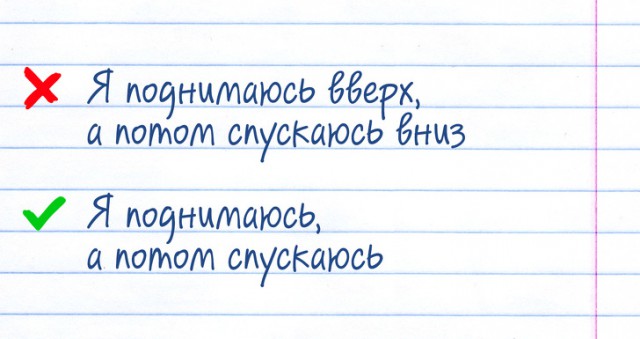 Я поднимаюсь вверх,
а потом спускаюсь вниз
Я поднимаюсь,
а потом спускаюсь